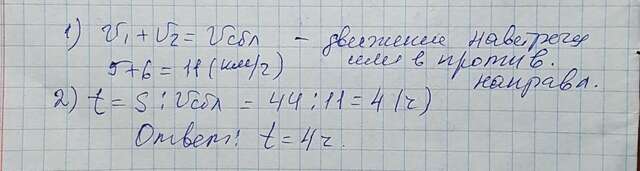 1) V₁ + V₂ = Vсбл – движение навстречу
5+6 = 11 (км/ч) или в против.
направл.
2) t = S : Vсбл = 44 : 11 = 4 (ч)
Ответ: t = 4 ч.